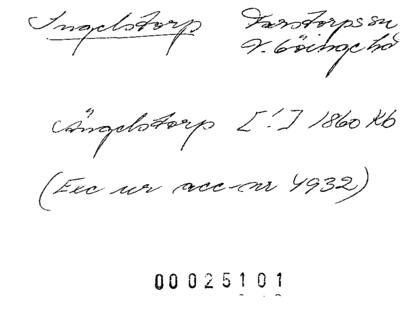 Ingelstorp Farstorps sn
V. Göinge hd
Ängelstorp [!] 1860 Kb
(Exc ur acc-nr 4932)
00025101